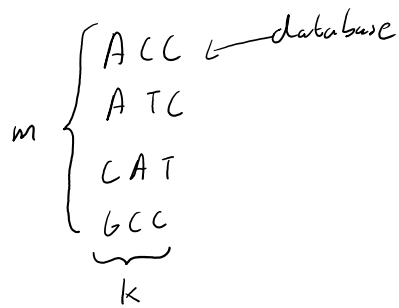 ACC database
ATC
m
CAT
GCC
k